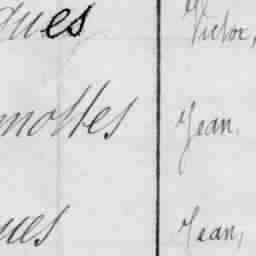 ques Victor,
mottes Jean.
ques Jean,